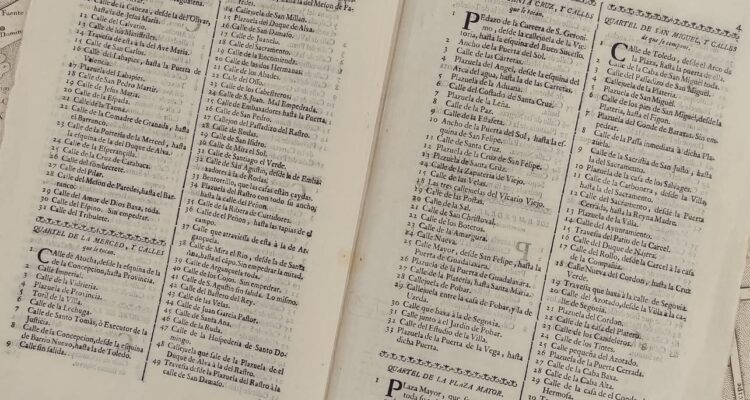 Fuente
Calle de la Cabeza, desde la del Olivar,
hasta la de Jesus Maria.
Calle de Calvario.
Calle de los Ministriles.
Travesia de esta à la del Ave Maria.
Calle de San Carlos.
Calle del Labapies, hasta la Puerta de
Valencia.
Plazuela del Labapies.
Calle de San Pedro Martir.
Calle de Jesus Maria.
Calle de la Espada.
Calle de la
Calle de la Comadre de Granada, hasta
el Barranco.
Calle de la Porteria de la Merced, hasta
la esquina de la del Duque de Alva.
Calle de la Esperanzilla.
Calle de la Cruz de Caravaca.
Calle del Sombrerete.
27 Calle del Pilar.
28 Calle del Meson de Paredes, hasta el Bar-
ranco.
29 Calle del Amor de Dios Baxa, toda.
30 Calle del Espino. Sin empedrar.
31 Calle del Tribulete.
QUARTEL DE LA MERCED, Y CALLES
que le tocan.
1 Calle de Atocha, desde la esquina de la
de la Concepcion, hasta Provincia.
2 Calle Imperial.
3 Calle de la Vidrieria.
4 Plazuela de Provincia.
5 Toril de la Villa.
6 Calle de la Lechuga.
7 Calle de Santo Tomás, ò Executor de la
Justicia.
8 Calle de la Concepcion, desde la esquina
de Barrio Nuevo, hasta la de Toledo.
9 Calle sin salida.
Calle del Meson de Pa-
Callejuela de San Millan.
Plazuela del Duque de Alva.
Calle de San Damaso.
Calle de Juanelo.
Calle del Sacramento.
Calle de la Encomienda.
Calle de los dos Hermanas.
Calle de los Abades.
Calle del Oso.
Calle de los Cabestreros.
Calle de S. Juan. Mal Empedrada.
Calle de Embaxadores hasta la Puerta.
Calle de San Pedro.
Callejon del Passadizo del Rastro.
Calle de Rodas.
Calle de San Isidro.
Calle de Mira el Sol.
Calle de Santiago el Verde.
Calle de San Agustin, desde la de Embaxa-
dores à la de Rodas.
Plazuela del Rastro con todo su ancho,
hasta la calle del Peñon.
Calle de la Ribera de Curtidores.
Calle de el Peñon, hasta las tapias de el
campo.
37 Calle que atraviesa de esta à la de Ar-
ganzuela.
38 Calle de Mira el Rio, desde la de Santa
Ana, hasta el Campo. Sin empedrar la mitad.
39 Calle de Arganzuela toda.
40 Calle de los Cojos. Sin empedrar.
41 Calle de S. Agustin sin salida. Lo mismo.
42 Calle del Bastero.
43 Calle de las Velas.
44 Calle de Juan Garcia Pastor.
45 Calle de Santa Ana.
46 Calle de la Ruda.
47 Calle de la Hospederia de Santo Do-
mingo.
48 Callejuela que sale de la Plazuela de el
Duque de Alva à la del Rastro.
49 Travesia desde la Plazuela del Rastro à la
calle de San Damaso.
CRUZ, Y CALLES
que le tocan.
1 Pedazo de la Carrera de S. Geroni-
mo, desde la callejuela de la Vic-
toria, hasta la esquina del Buen Sucesso.
2 Ancho de la Puerta del Sol.
3 Calle de las Carretas.
4 Plazuela del Angel, desde la esquina del
Arca del agua, hasta la de las Carretas.
5 Plazuela de la Aduana.
6 Calle del Costado de Santa Cruz.
7 Plazuela de la Leña.
8 Calle de la Paz.
9 Calle de la Estafeta.
10 Ancho de la Puerta del Sol, hasta la es-
quina de San Felipe.
11 Calle de Santa Cruz.
12 Plazuela de la Cruz de San Felipe.
13 Plazuela de Santa Cruz.
14 Calle de la Zapateria de Viejo.
15 Calle de las Velas.
16 Las tres callejuelas del Vicario Viejo.
Calle de las Postas.
Calle de la Sal.
Calle de San Christoval.
22 Calle de los Boteros.
23 Calle de la Amargura.
24 Calle Nueva.
25 Calle Mayor, desde San Felipe, hasta la
Puerta de Guadalaxara.
26 Plazuela de la Puerta de Guadalaxara.
27 Calle de la Plateria, hasta Santa Maria.
28 Calle de
29 Callejuela entre la casa de Pobar, y la de
Uzeda.
30 Calle que baxa à la de Segovia.
31 Calle junto à el Jardin de Pobar.
32 Calle del Estudio de la Villa.
33 Plazuela de la Puerta de la Vega, hasta
dicha Puerta.
QUARTEL DE LA PLAZA MAYOR,
1 Plaza Mayor,
4
QUARTEL DE SAN MIGUEL, Y CALLES
de que se compone.
1 Calle de Toledo, desde el Arco de
la Plaza, hasta la puerta de ella.
2 Calle de la Caba de San Miguel toda.
3 Calle del Passadizo de San Miguel.
4 Callejuela de la Plateria.
5 Plazuela de San Miguel.
6 Calle de los pies de San Miguel, desde la
Plateria, hasta el Figon.
7 Plazuela del Conde de Barajas, sin em-
pedrar.
8 Calle de la Passa inmediata à dicha Pla-
zuela.
9 Calle de la Sacristia de San Justo, hasta
la del Sacramento.
10 Plazuela de la casa de los Salvages.
11 Calle de la Carbonera, desde la Villa,
hasta la del Sacramento.
12 Calle del Sacramento, desde la Puerta
Cerrada, hasta la Reyna Madre.
13 Plazuela de la Villa.
14 Calle del Ayuntamiento.
15 Travesia del Patio de la Carcel.
16 Calle del Duque de Najera.
17 Calle del Rollo, desde la Carcel à la casa
de la Compañia.
18 Calle Nueva del Cordon, hasta la Cruz
Verde.
19 Travesia que baxa à la calle de Segovia.
20 Calle del Azotado, desde la Villa à la ca-
lle de Segovia.
21 Plazuela del Cordon.
22 Calle de la casa del Platero.
23 Calle de los Candeleros.
24 Calle de los Tintes.
25 Calle pequeña del Azotado.
26 Plazuela de la Puerta Cerrada.
27 Calle de la Caba Baxa.
28 Calle de la Caba Alta.
29 Calle de la casa de el Conde de
Hermosa.
30 Tra